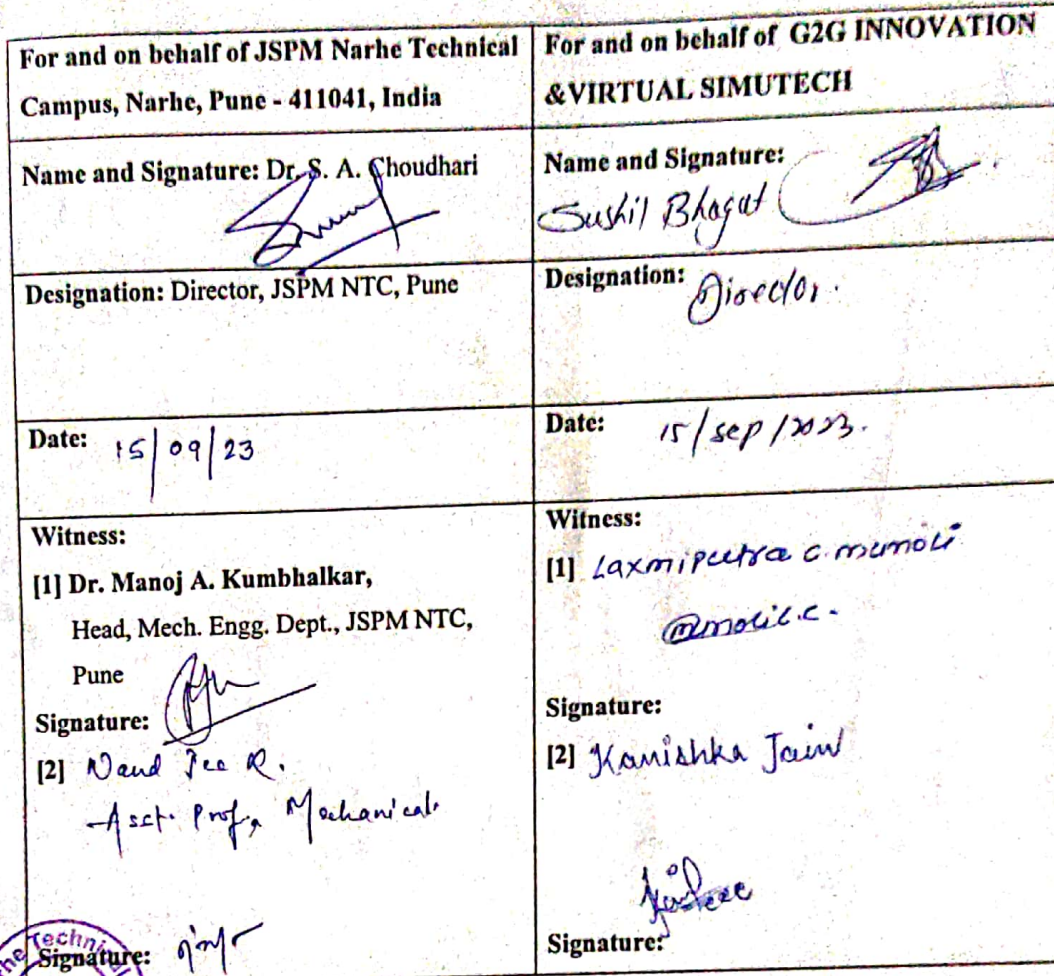 For and on behalf of JSPM Narhe Technical
Campus, Narhe, Pune - 411041, India
For and on behalf of G2G INNOVATION
&VIRTUAL SIMUTECH
Name and Signature: Dr. S. A. Choudhari
Name and Signature:
Sushil Bhagat
Designation: Director, JSPM NTC, Pune
Designation: Director.
Date: 15/09/23
Date: 15/sep/2023.
Witness:
[1] Dr. Manoj A. Kumbhalkar,
Head, Mech. Engg. Dept., JSPM NTC,
Pune
Signature:
[2] Nand Jee R.
Asst. Prof., Mechanical.
Signature:
Witness:
[1] Laxmiputra C
Signature:
[2] Kanishka Jain
Signature:
he Technical